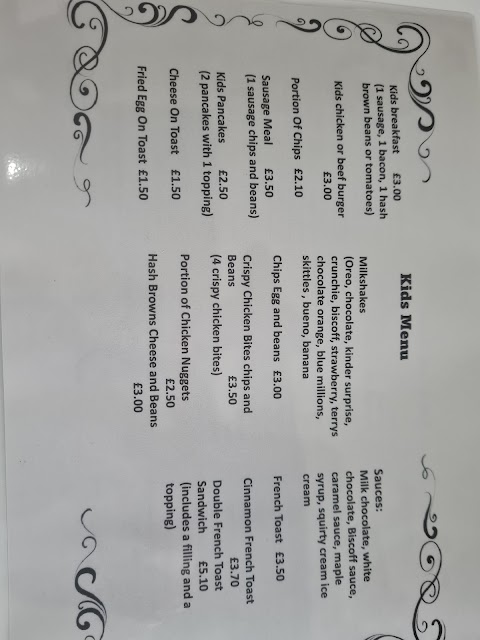 Kids Menu
Kids breakfast £3.00
(1 sausage, 1 bacon, 1 hash
brown beans or tomatoes)
Kids chicken or beef burger
£3.00
Portion Of Chips £2.10
Sausage Meal £3.50
(1 sausage chips and beans)
Kids Pancakes £2.50
(2 pancakes with 1 topping)
Cheese On Toast £1.50
Fried Egg On Toast £1.50
Milkshakes
(Oreo, chocolate, kinder surprise,
crunchie, biscoff, strawberry, terrys
chocolate orange, blue millions,
skittles , bueno, banana
Chips Egg and beans £3.00
Crispy Chicken Bites chips and
Beans £3.50
(4 crispy chicken bites)
Portion of Chicken Nuggets
£2.50
Hash Browns Cheese and Beans
£3.00
Sauces:
Milk chocolate, white
chocolate, Biscoff sauce,
caramel sauce, maple
syrup, squirty cream ice
cream
French Toast £3.50
Cinnamon French Toast
£3.70
Double French Toast
Sandwich £5.10
(includes a filling and a
topping)